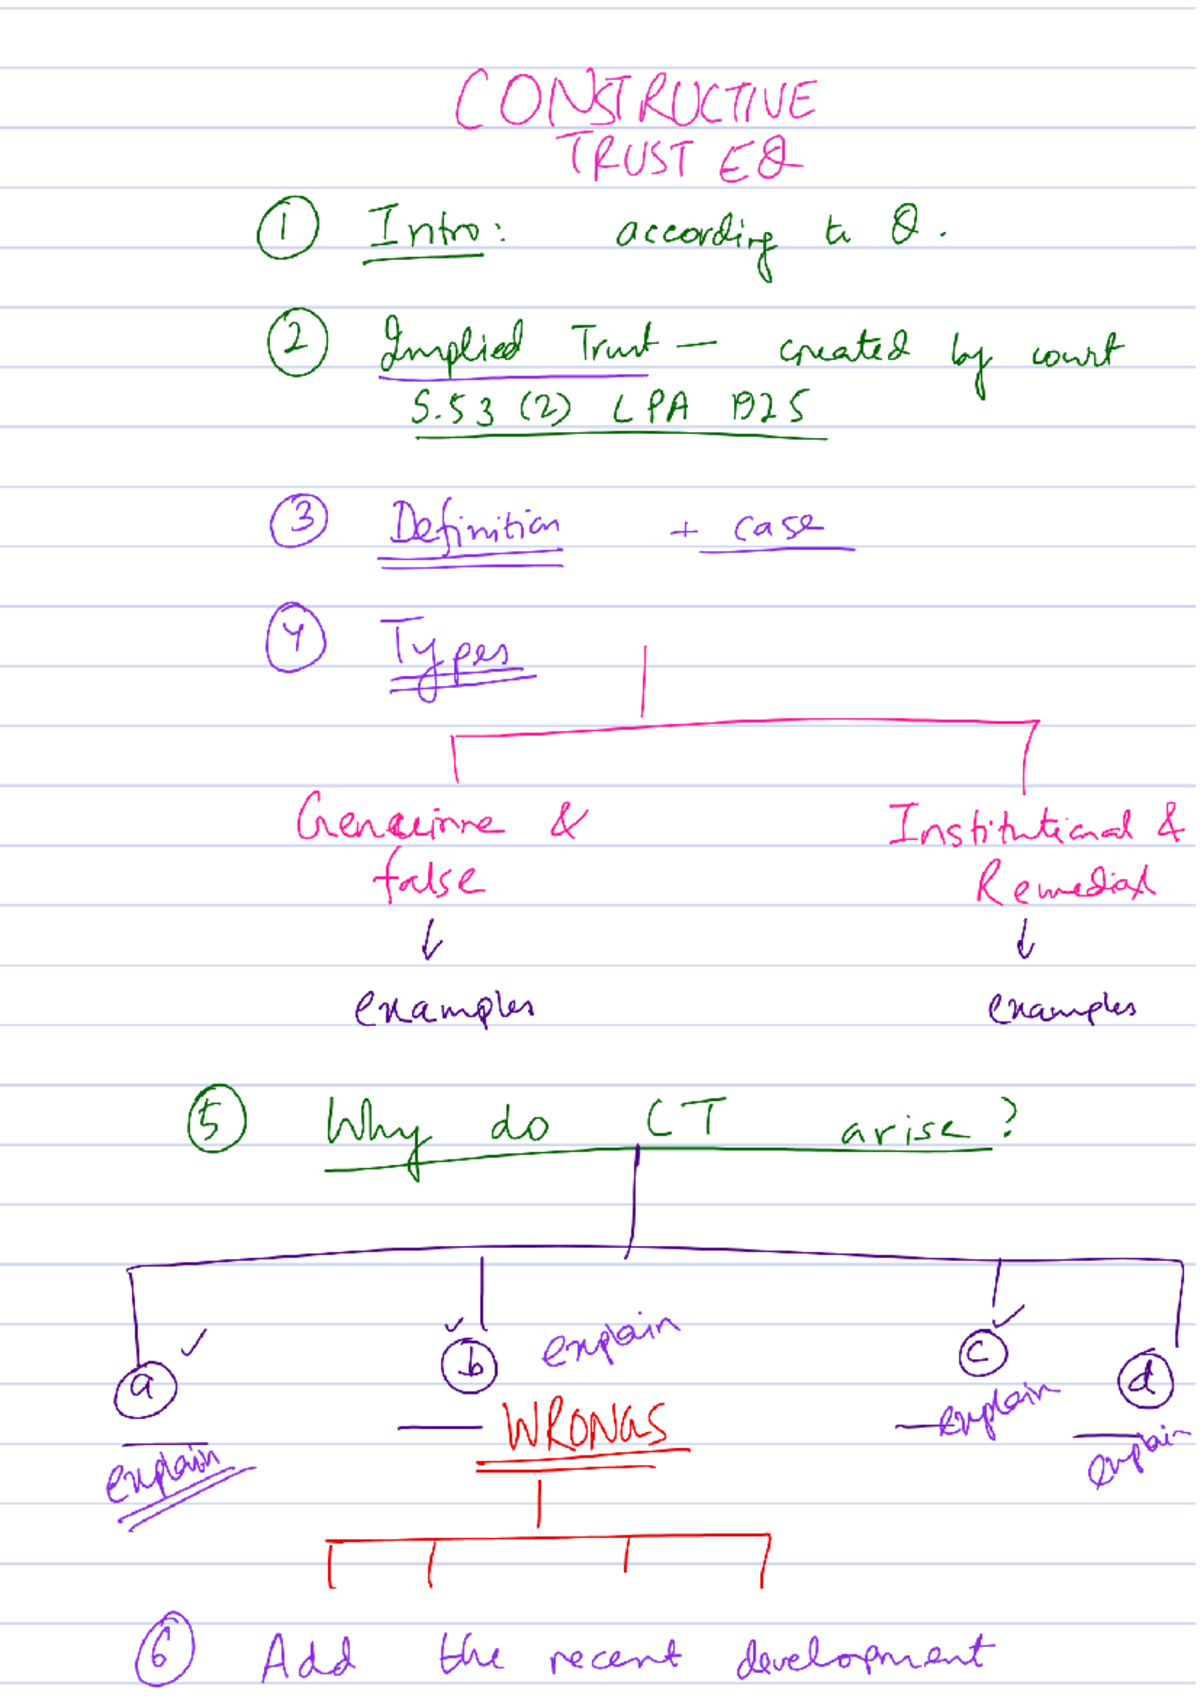 CONSTRUCTIVE
TRUST EQ
① Intro: according to Q.
② Implied Trust — created by court
S.53 (2) LPA 1925
③ Definition + case
④ Types
Genuinne & Institutional &
false Remedial
↓ ↓
examples examples
⑤ Why do CT arise?
ⓐ ✓ ✓ ⓑ explain ⓒ ✓ ⓓ
explain — WRONGS — explain — explain
⑥ Add the recent development